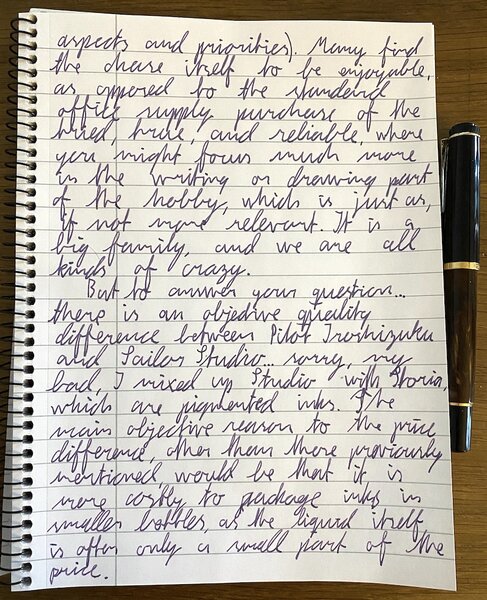 aspects and priorities). Many find
the chase itself to be enjoyable,
as opposed to the standard
office supply purchase of the
tried, true, and reliable, where
you might focus much more
in the writing or drawing part
of the hobby, which is just as,
if not more relevant. It is a
big family, and we are all
kinds of crazy.
But to answer your question...
there is an objective quality
difference between Pilot Iroshizuku
and Sailor Studio... sorry, my
bad, I mixed up Studio with Storia,
which are pigmented inks. The
main objective reason to the price
difference, other than those previously
mentioned would be that it is
more costly to package inks in
smaller bottles, as the liquid itself
is often only a small part of the
price.